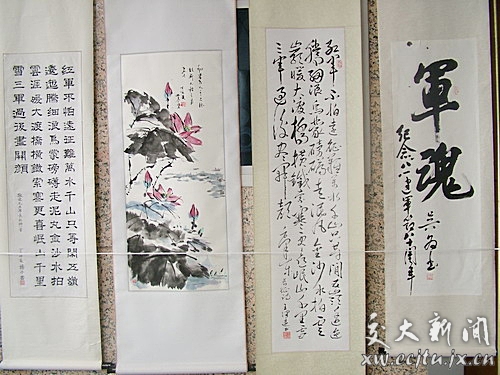 紅軍不怕遠征難萬水千山只等閑五嶺
逶迤騰細浪烏蒙磅礴走泥丸金沙水拍
雲崖暖大渡橋橫鐵索寒更喜岷山千里
雪三軍過後盡開顏
紅軍不怕遠征難萬水千山只等閑五嶺逶迤
騰細浪烏蒙磅礴走泥丸金沙水拍雲
崖暖大渡橋橫鐵索寒更喜岷山千里雪
三軍過後盡開顏
軍魂
紀念八一建軍八十周年
交大新闻
xw.ecjtu.jx.cn